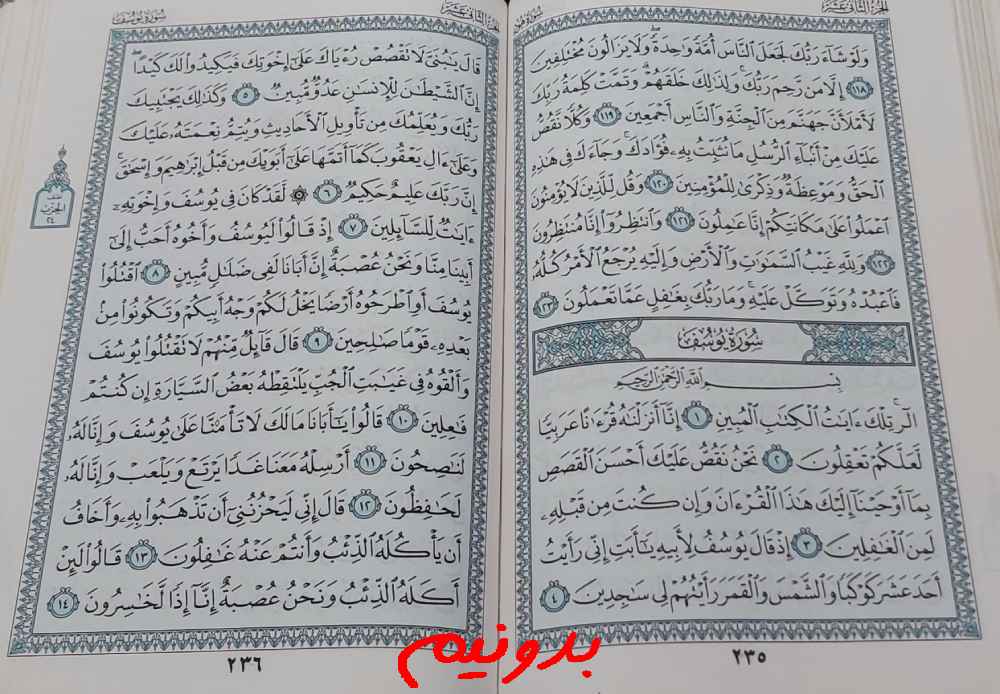 الجزء الثاني عشر
وَلَوْ شَآءَ رَبُّكَ لَجَعَلَ ٱلنَّاسَ أُمَّةً وَٰحِدَةً ۖ وَلَا يَزَالُونَ مُخْتَلِفِينَ
١١٨ إِلَّا مَن رَّحِمَ رَبُّكَ ۚ وَلِذَٰلِكَ خَلَقَهُمْ ۗ وَتَمَّتْ كَلِمَةُ رَبِّكَ
لَأَمْلَأَنَّ جَهَنَّمَ مِنَ ٱلْجِنَّةِ وَٱلنَّاسِ أَجْمَعِينَ ١١٩ وَكُلًّا نَّقُصُّ
عَلَيْكَ مِنْ أَنۢبَآءِ ٱلرُّسُلِ مَا نُثَبِّتُ بِهِۦ فُؤَادَكَ ۚ وَجَآءَكَ فِى هَٰذِهِ
ٱلْحَقُّ وَمَوْعِظَةٌ وَذِكْرَىٰ لِلْمُؤْمِنِينَ ١٢٠ وَقُل لِّلَّذِينَ لَا يُؤْمِنُونَ
ٱعْمَلُوا۟ عَلَىٰ مَكَانَتِكُمْ إِنَّا عَٰمِلُونَ ١٢١ وَٱنتَظِرُوٓا۟ إِنَّا مُنتَظِرُونَ
١٢٢ وَلِلَّهِ غَيْبُ ٱلسَّمَٰوَٰتِ وَٱلْأَرْضِ وَإِلَيْهِ يُرْجَعُ ٱلْأَمْرُ كُلُّهُۥ
فَٱعْبُدْهُ وَتَوَكَّلْ عَلَيْهِ ۚ وَمَا رَبُّكَ بِغَٰفِلٍ عَمَّا تَعْمَلُونَ ١٢٣
سُورَةُ يُوسُفَ
بِسْمِ ٱللَّهِ ٱلرَّحْمَٰنِ ٱلرَّحِيمِ
الٓر ۚ تِلْكَ ءَايَٰتُ ٱلْكِتَٰبِ ٱلْمُبِينِ ١ إِنَّآ أَنزَلْنَٰهُ قُرْءَٰنًا عَرَبِيًّا
لَّعَلَّكُمْ تَعْقِلُونَ ٢ نَحْنُ نَقُصُّ عَلَيْكَ أَحْسَنَ ٱلْقَصَصِ
بِمَآ أَوْحَيْنَآ إِلَيْكَ هَٰذَا ٱلْقُرْءَانَ وَإِن كُنتَ مِن قَبْلِهِۦ
لَمِنَ ٱلْغَٰفِلِينَ ٣ إِذْ قَالَ يُوسُفُ لِأَبِيهِ يَٰٓأَبَتِ إِنِّى رَأَيْتُ
أَحَدَ عَشَرَ كَوْكَبًا وَٱلشَّمْسَ وَٱلْقَمَرَ رَأَيْتُهُمْ لِى سَٰجِدِينَ ٤
٢٣٥
الجزء الثاني عشر
سورة يوسف
قَالَ يَٰبُنَىَّ لَا تَقْصُصْ رُءْيَاكَ عَلَىٰٓ إِخْوَتِكَ فَيَكِيدُوا۟ لَكَ كَيْدًا ۖ
إِنَّ ٱلشَّيْطَٰنَ لِلْإِنسَٰنِ عَدُوٌّ مُّبِينٌ ٥ وَكَذَٰلِكَ يَجْتَبِيكَ
رَبُّكَ وَيُعَلِّمُكَ مِن تَأْوِيلِ ٱلْأَحَادِيثِ وَيُتِمُّ نِعْمَتَهُۥ عَلَيْكَ
وَعَلَىٰٓ ءَالِ يَعْقُوبَ كَمَآ أَتَمَّهَا عَلَىٰٓ أَبَوَيْكَ مِن قَبْلُ إِبْرَٰهِيمَ وَإِسْحَٰقَ ۚ
إِنَّ رَبَّكَ عَلِيمٌ حَكِيمٌ ٦ ۞ لَّقَدْ كَانَ فِى يُوسُفَ وَإِخْوَتِهِۦٓ
ءَايَٰتٌ لِّلسَّآئِلِينَ ٧ إِذْ قَالُوا۟ لَيُوسُفُ وَأَخُوهُ أَحَبُّ إِلَىٰٓ
أَبِينَا مِنَّا وَنَحْنُ عُصْبَةٌ إِنَّ أَبَانَا لَفِى ضَلَٰلٍ مُّبِينٍ ٨ ٱقْتُلُوا۟
يُوسُفَ أَوِ ٱطْرَحُوهُ أَرْضًا يَخْلُ لَكُمْ وَجْهُ أَبِيكُمْ وَتَكُونُوا۟ مِنۢ
بَعْدِهِۦ قَوْمًا صَٰلِحِينَ ٩ قَالَ قَآئِلٌ مِّنْهُمْ لَا تَقْتُلُوا۟ يُوسُفَ
وَأَلْقُوهُ فِى غَيَٰبَتِ ٱلْجُبِّ يَلْتَقِطْهُ بَعْضُ ٱلسَّيَّارَةِ إِن كُنتُمْ
فَٰعِلِينَ ١٠ قَالُوا۟ يَٰٓأَبَانَا مَا لَكَ لَا تَأْمَ۫نَّا عَلَىٰ يُوسُفَ وَإِنَّا لَهُۥ
لَنَٰصِحُونَ ١١ أَرْسِلْهُ مَعَنَا غَدًا يَرْتَعْ وَيَلْعَبْ وَإِنَّا لَهُۥ
لَحَٰفِظُونَ ١٢ قَالَ إِنِّى لَيَحْزُنُنِىٓ أَن تَذْهَبُوا۟ بِهِۦ وَأَخَافُ
أَن يَأْكُلَهُ ٱلذِّئْبُ وَأَنتُمْ عَنْهُ غَٰفِلُونَ ١٣ قَالُوا۟ لَئِنْ
أَكَلَهُ ٱلذِّئْبُ وَنَحْنُ عُصْبَةٌ إِنَّآ إِذًا لَّخَٰسِرُونَ ١٤
نصف
الحزب
٢٤
٢٣٦
بدونیم